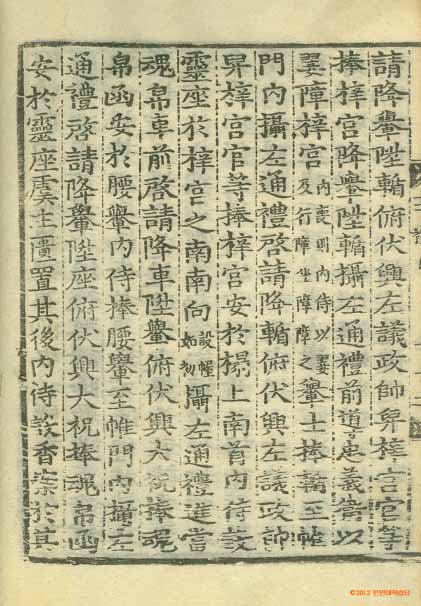 請降轝陞輴俯伏興左議政帥舁梓宮官等
捧梓宮降轝陞輴攝左通禮前導忠義衛以
翣障梓宮內喪則內侍以翣及行障坐障障之轝士捧輴至帷
門內攝左通禮啓請降輴俯伏興左議政帥
舁梓宮官等捧梓宮安於榻上南首內侍設
靈座於梓宮之南南向設幄如初攝左通禮進當
魂帛車前啓請降車陞轝俯伏興大祝捧魂
帛函安於腰轝內侍捧腰轝至帷門內攝左
通禮啓請降轝陞座俯伏興大祝捧魂帛函
安於靈座虞主匱置其後內侍設香案於其
©2012 인민대학습당